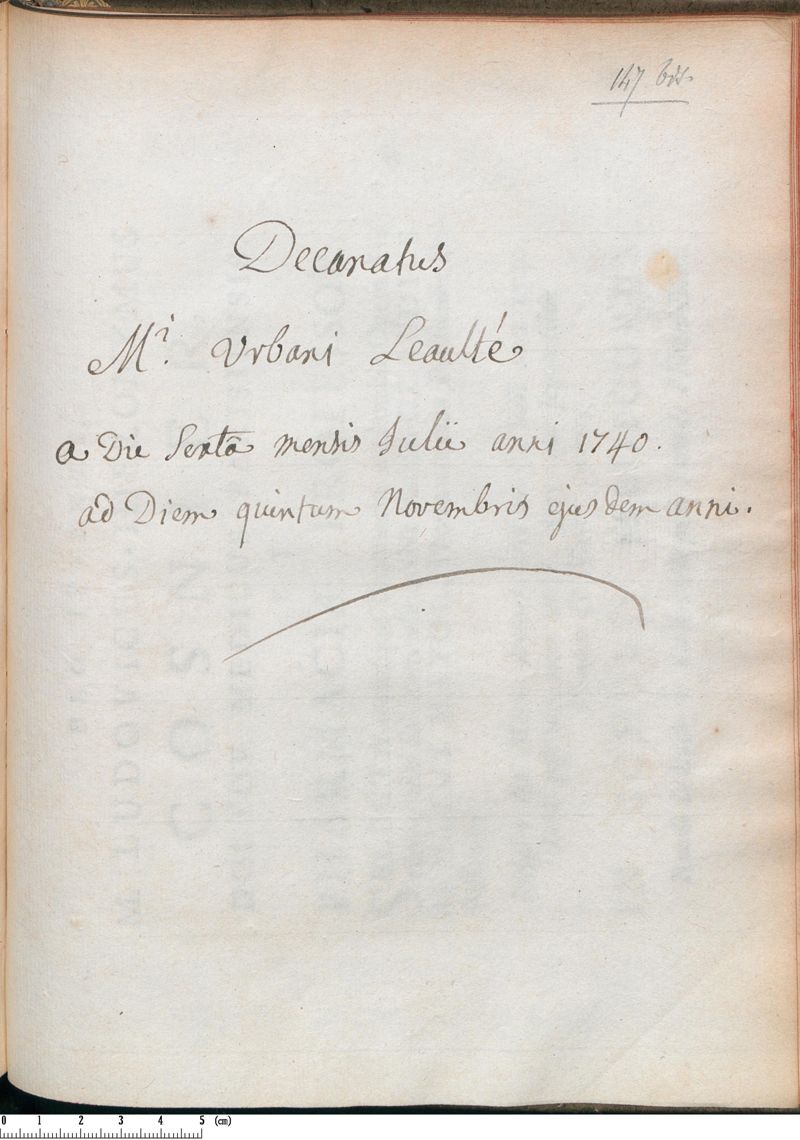 147 bis.
Decanatus
Mi. Urbani Leaulté
a Die Sextâ mensis Julii anni 1740.
ad Diem quintum Novembris ejusdem anni.
0 1 2 3 4 5 (cm)